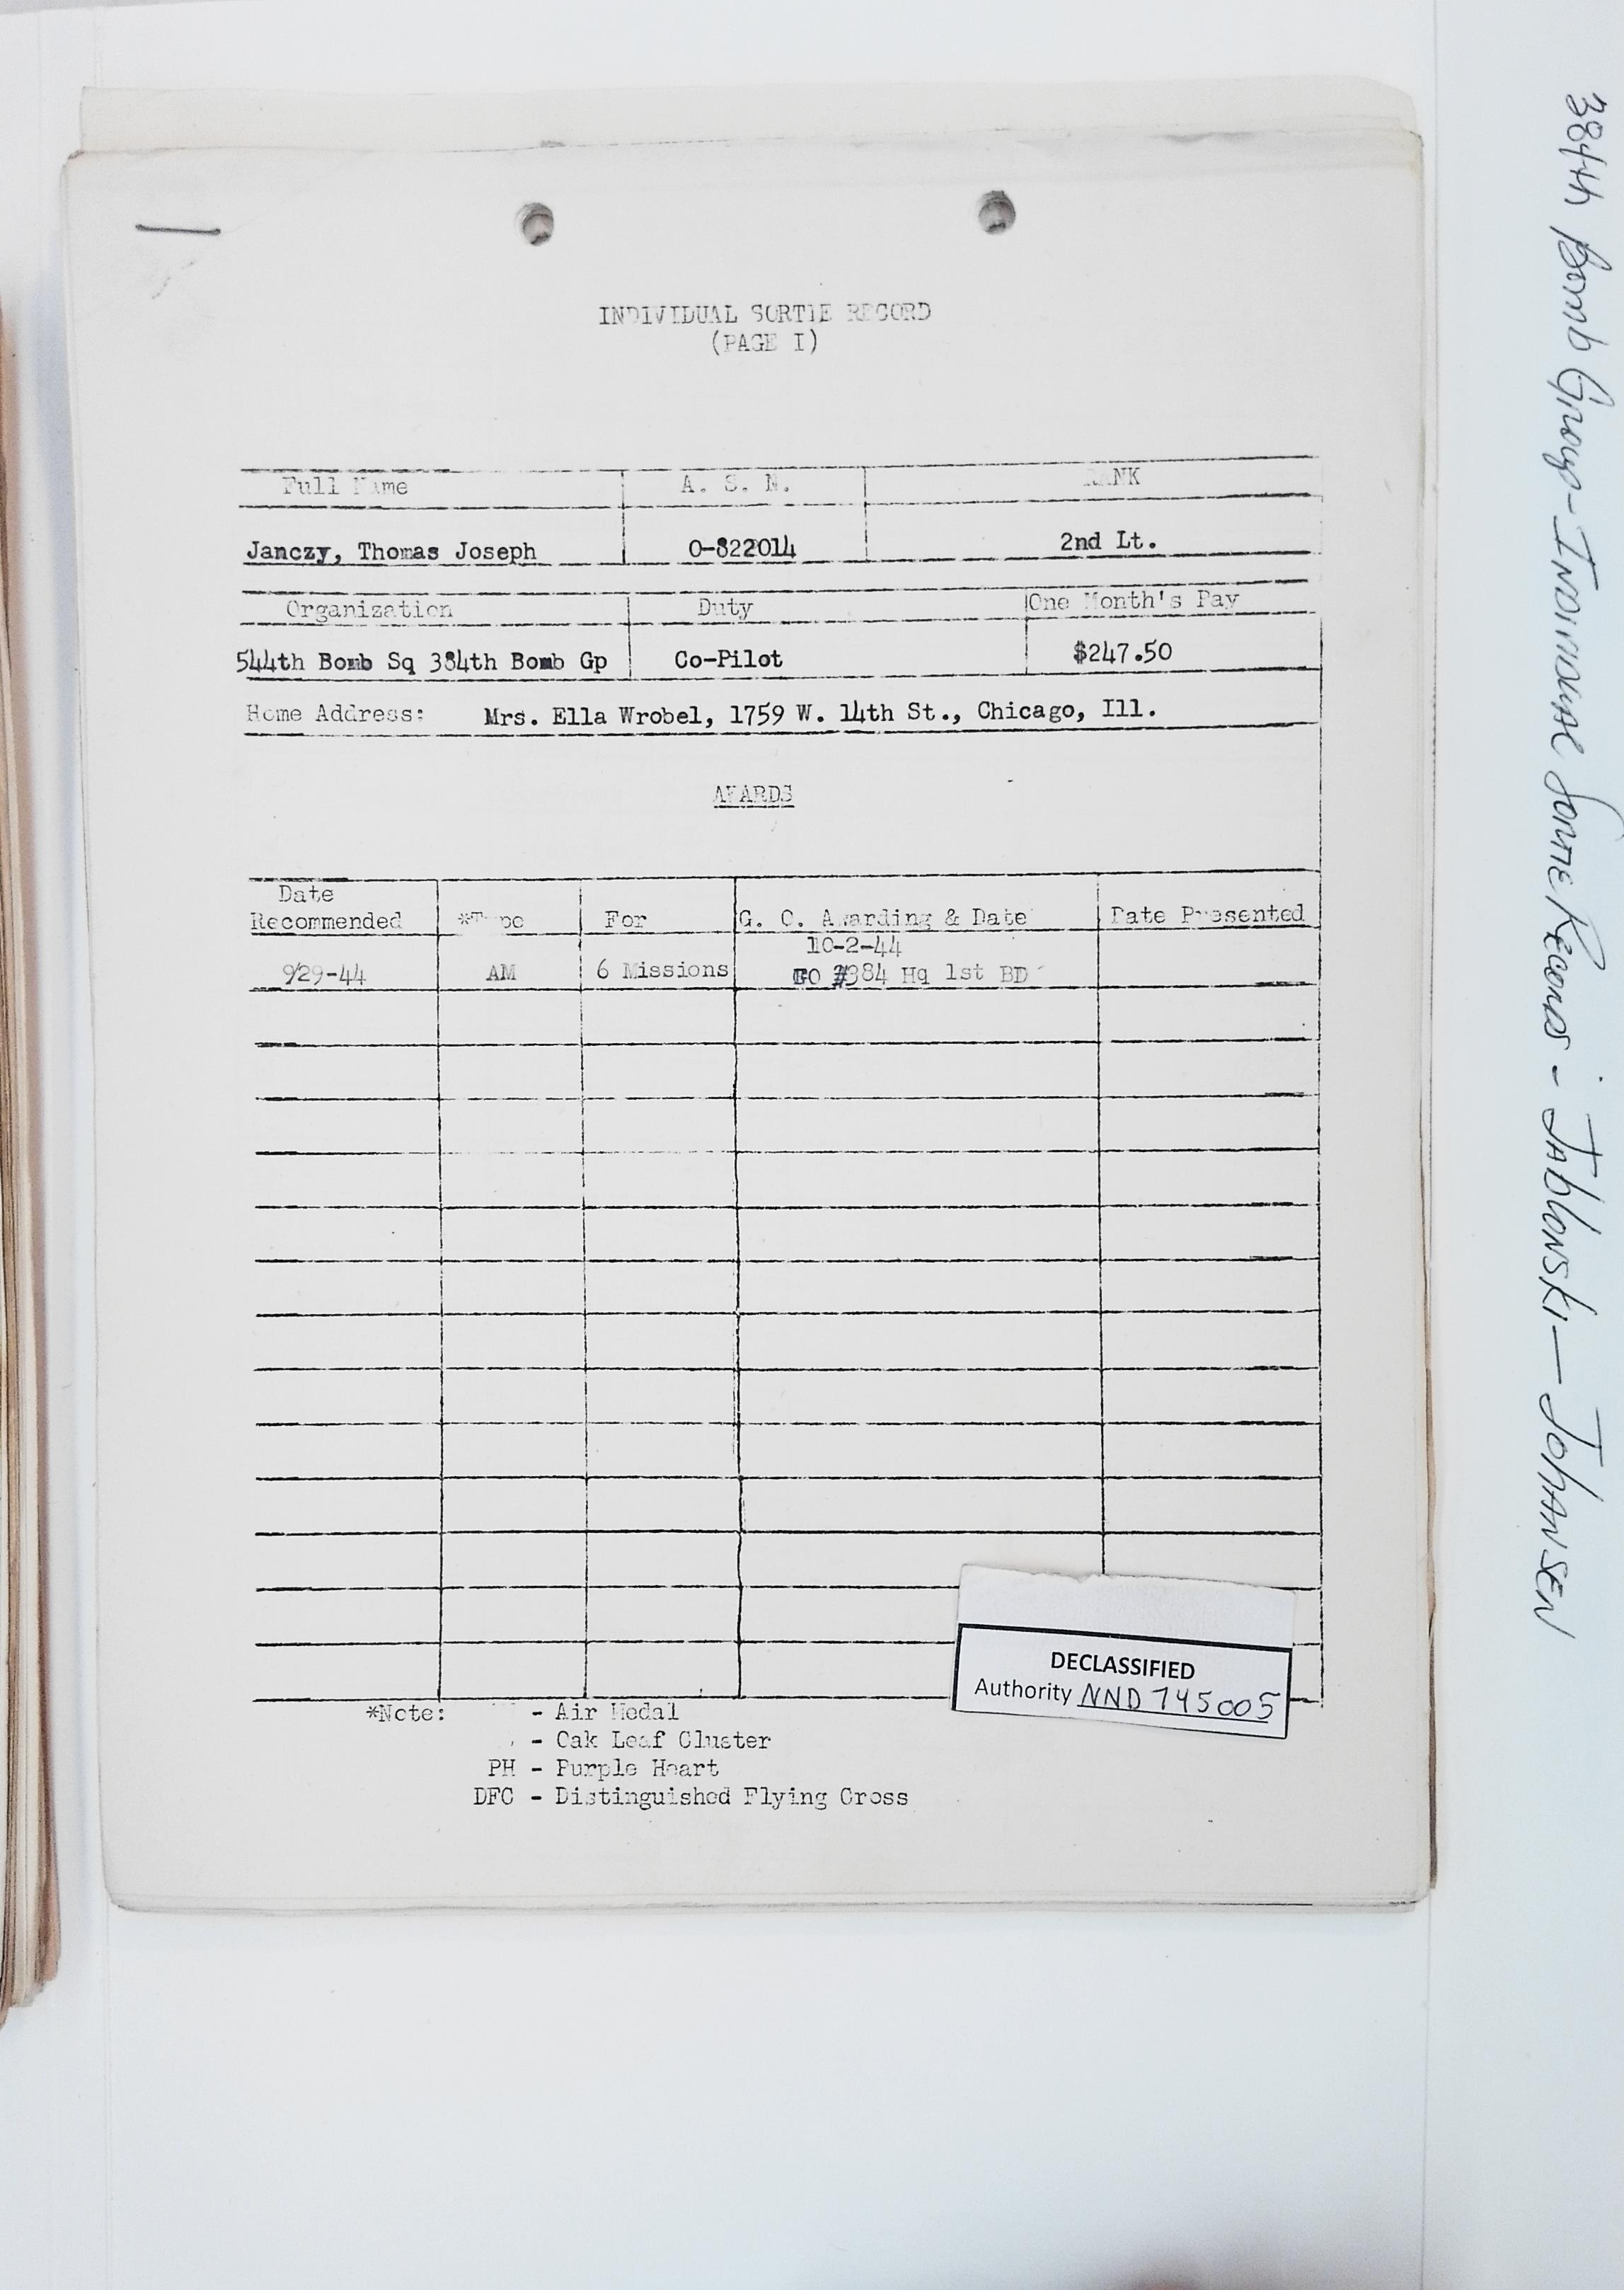 INDIVIDUAL SORTIE RECORD
(PAGE I)
Full Name A. S. N. RANK
Janczy, Thomas Joseph 0-822014 2nd Lt.
Organization Duty One Month's Pay
544th Bomb Sq 384th Bomb Gp Co-Pilot $247.50
Home Address: Mrs. Ella Wrobel, 1759 W. 14th St., Chicago, Ill.
AWARDS
Date
Recommended *Type For G. O. Awarding & Date Date Presented
10-2-44
9/29-44 AM 6 Missions GO #384 Hq 1st BD
DECLASSIFIED
Authority NND 745005
*Note: - Air Medal
- Oak Leaf Cluster
PH - Purple Heart
DFC - Distinguished Flying Cross
384th Bomb Group - Individual Sortie Records - Jablonski — Johansen